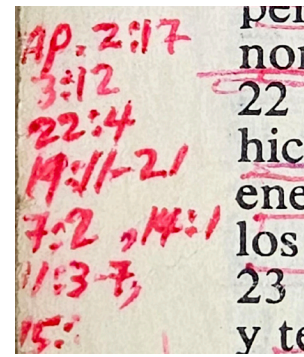 AP. 2:17
3:12
22:4
19:11-21
7:2, 14:1
11:3-7,
15:
per
nor
22
hic
ene
los
23
y te